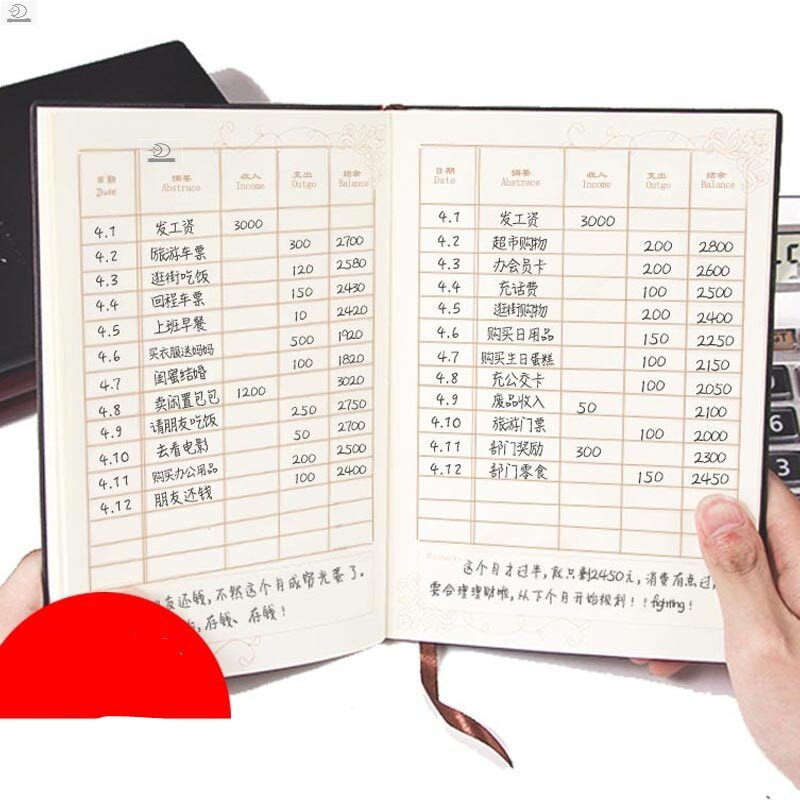 日期 摘要 收入 支出 结余
Date Abstrace Income Outgo Balance
4.1 发工资 3000
4.2 旅游车票 300 2700
4.3 逛街吃饭 120 2580
4.4 回程车票 150 2430
4.5 上班早餐 10 2420
4.6 买衣服送妈妈 500 1920
4.7 闺蜜结婚 100 1820
4.8 卖闲置包包 1200 3020
4.9 请朋友吃饭 250 2750
4.10 去看电影 50 2700
4.11 购买办公用品 200 2500
4.12 朋友还钱 100 2400
友还钱,不然这个月成穷光蛋了.
,存钱、存钱!
日期 摘要 收入 支出 结余
Date Abstrace Income Outgo Balance
4.1 发工资 3000
4.2 超市购物 200 2800
4.3 办会员卡 200 2600
4.4 充话费 100 2500
4.5 逛街购物 200 2400
4.6 购买日用品 150 2250
4.7 购买生日蛋糕 100 2150
4.8 充公交卡 100 2050
4.9 废品收入 50 2100
4.10 旅游门票 100 2000
4.11 部门奖励 300 2300
4.12 部门零食 150 2450
Remarks
这个月才过半,就只剩2450元,消费有点过,
要合理理财啦,从下个月开始极刻!!fighting!
6
3